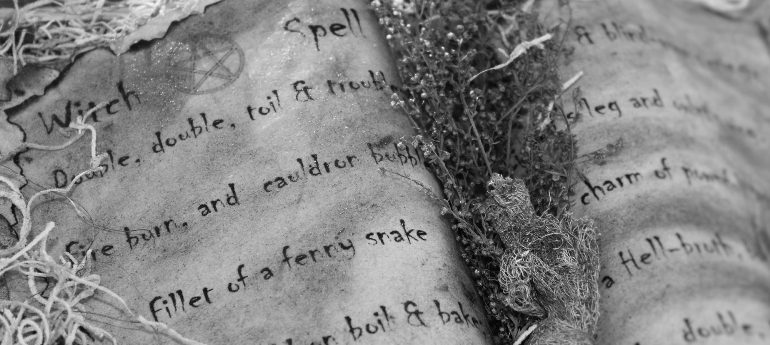 Witch Spell
Double, double, toil & trouble
fire burn, and cauldron bubble
fillet of a fenny snake
boil & bake
& blind
s leg and
charm of
a Hell-broth,
double,